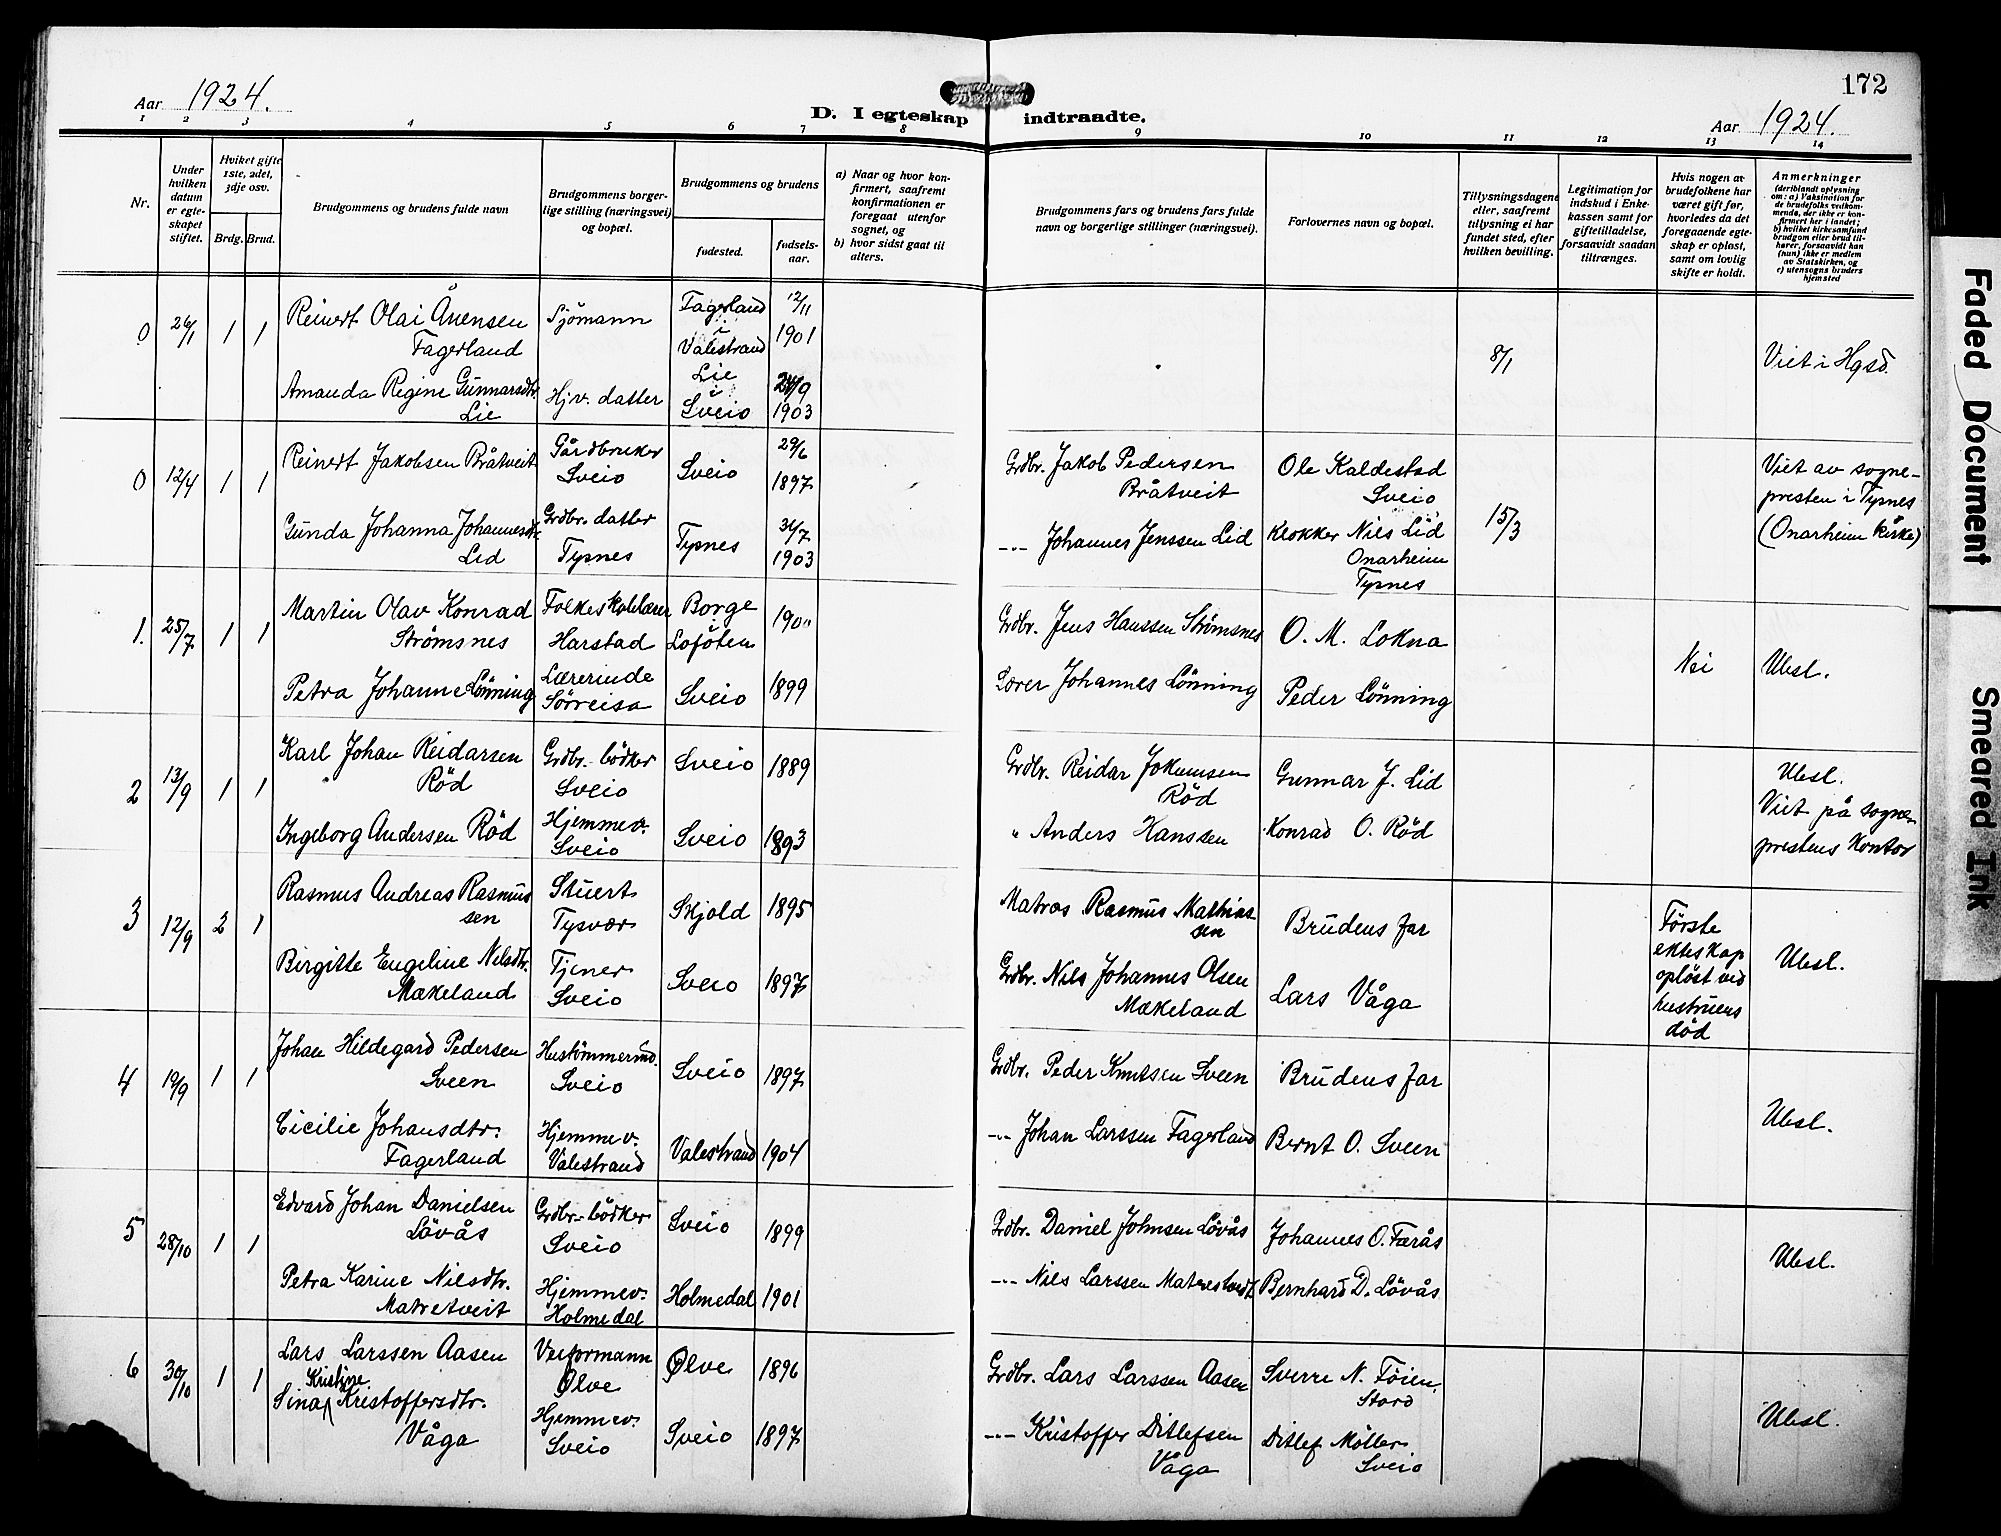 172
Aar 1924.
D. I egteskap indtraadte.
Aar 1924.
1 2 3 4 5 6 7 8 9 10 11 12 13 14
Nr.
Under hvilken datum er egteskapet stiftet.
Hvilket gifte 1ste, 2det, 3dje osv.
Brdg. Brud.
Brudgommens og brudens fulde navn
Brudgommens borgerlige stilling (næringsvei) og bopæl.
Brudgommens og brudens
fødested.
fødselsaar.
a) Naar og hvor konfirmert, saafremt konfirmationen er foregaat utenfor sognet, og
b) hvor sidst gaat til alters.
Brudgommens fars og brudens fars fulde navn og borgerlige stillinger (næringsvei).
Forlovernes navn og bopæl.
Tillysningsdagene eller, saafremt tillysning ei har fundet sted, efter hvilken bevilling.
Legitimation for indskud i Enkekassen samt for giftetilladelse, forsaavidt saadan tiltrænges.
Hvis nogen av brudefolkene har været gift før, hvorledes da det foregaaende egteskap er opløst, samt om lovlig skifte er holdt.
Anmerkninger (deriblandt oplysning om: a) Vaksination for de brudefolks vedkommende, der ikke er konfirmert her i landet; b) hvilket kirkesamfund brudgom eller brud tilhører, forsaavidt han (hun) ikke er medlem av Statskirken, og c) utensogns bruders hjemsted
0 26/1 1 1 Reinert Olai Ånensen Fagerland Sjömann Fagerland i Valestrand 12/11 1901
Amanda Regine Gunnarsdtr. Lie Hjv. datter Lie i Sveio 24/9 1903
8/1 Viet i Hgsd.
0 12/4 1 1 Reinert Jakobsen Bråtveit Gårdbruker Sveio Sveio 29/6 1897
Gunda Johanna Johannesdtr. Lid Grdbr. datter Tysnes Tysnes 31/7 1903
Grdbr. Jakob Pedersen Bråtveit Ole Kaldestad Sveio
-"- Johannes Jenssen Lid Klokker Nils Lid Onarheim Tysnes
15/3 Viet av sognepresten i Tysnes (Onarheim kirke)
1. 25/7 1 1 Martin Olav Konrad Strømsnes Folkeskolelærer Harstad Borge i Lofoten 190"
Petra Johanne Lönning Lærerinde Sörreisa Sveio 1899
Grdbr. Jens Hanssen Strømsnes O. M. Lokna
Lærer Johannes Lönning Peder Lönning
Nei Ubesl.
2 13/9 1 1 Karl Johan Reidarsen Röd Grdbr.-bödker Sveio Sveio 1889
Ingeborg Andersen Röd Hjemmev. Sveio Sveio 1893
Grdbr. Reidar Jokumsen Röd Gunnar J. Lid
" Anders Hanssen Konrad O. Röd
Ubesl. Viet på sogneprestens kontor
3 12/9 2 1 Rasmus Andreas Rasmussen Stuert Tysvær Skjold 1895
Birgitte Engeline Nilsdtr. Mækeland Tjener Sveio Sveio 1897
Matros Rasmus Mathiassen Brudens far
Grdbr. Nils Johannes Olsen Mækeland Lars Våga
Første ekteskap opløst ved hustruens död Ubesl.
4 19/9 1 1 Johan Hildegard Pedersen Sveen Hustömmermd. Sveio Sveio 1897
Cicilie Johansdtr. Fagerland Hjemmev. Valestrand Valestrand 1904
Grdbr. Peder Knutsen Sveen Brudens far
-"- Johan Larssen Fagerland Bernt O. Sveen
Ubesl.
5 28/10 1 1 Edvard Johan Danielsen Lövås Grdbr.-bödker Sveio Sveio 1899
Petra Karine Nilsdtr. Matretveit Hjemmev. Holmedal Holmedal 1901
Grdbr. Daniel Johnsen Lövås Johannes O. Færås
-"- Nils Larssen Matretveit Bernhard D. Lövås
Ubesl.
6 30/10 1 1 Lars Larssen Aasen Verformann Ølve Ølve 1896
Sina Kristine Kristoffersdtr. Våga Hjemmev. Sveio Sveio 1897
Grdbr. Lars Larssen Aasen Sverre N. Föien. Stord
-"- Kristoffer Ditlefsen Våga Ditlef Möller Sveio
Ubesl.
Faded Document
Smeared Ink